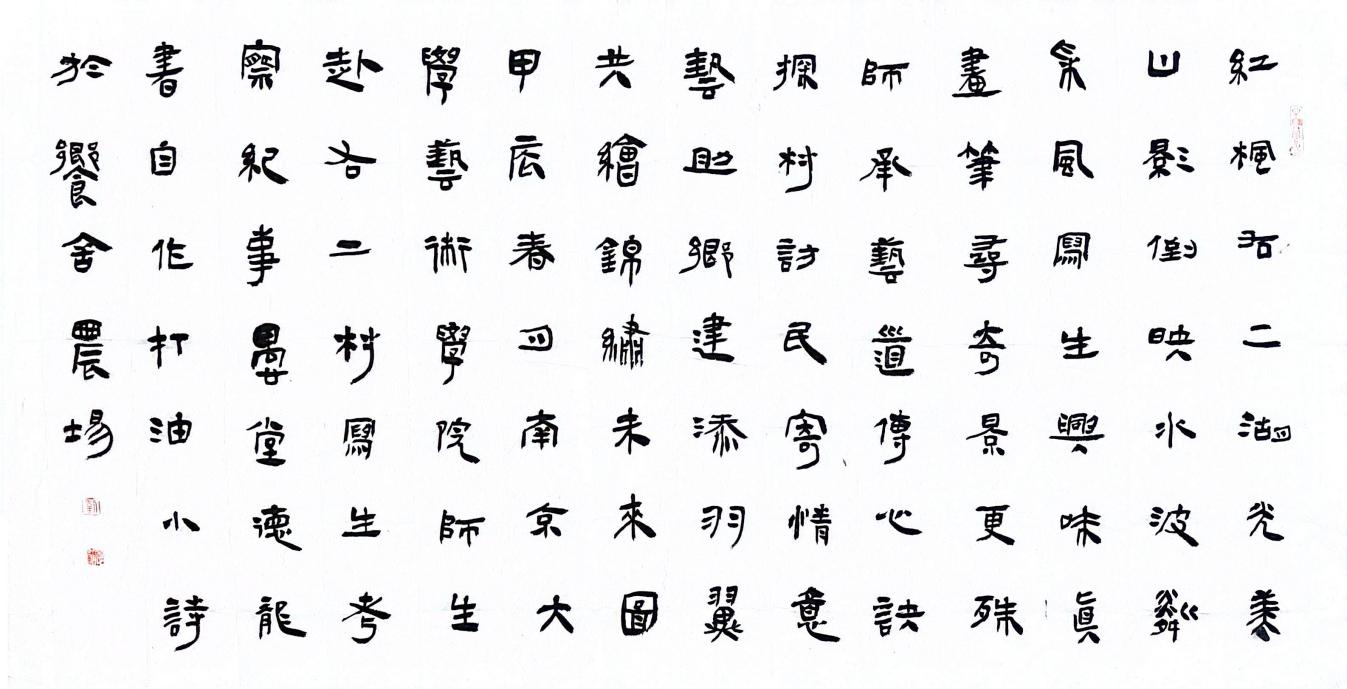 紅楓谷二湖光美
山影倒映水波粼
采風寫生興味眞
畫筆尋奇景更殊
師承藝道傳心訣
探村訪民寄情意
藝助鄉建添羽翼
共繪錦繡未來圖
甲辰春四南京大
學藝術學院師生
赴谷二村寫生考
察紀事堂德龍
書自作打油小詩
於饗舍農場